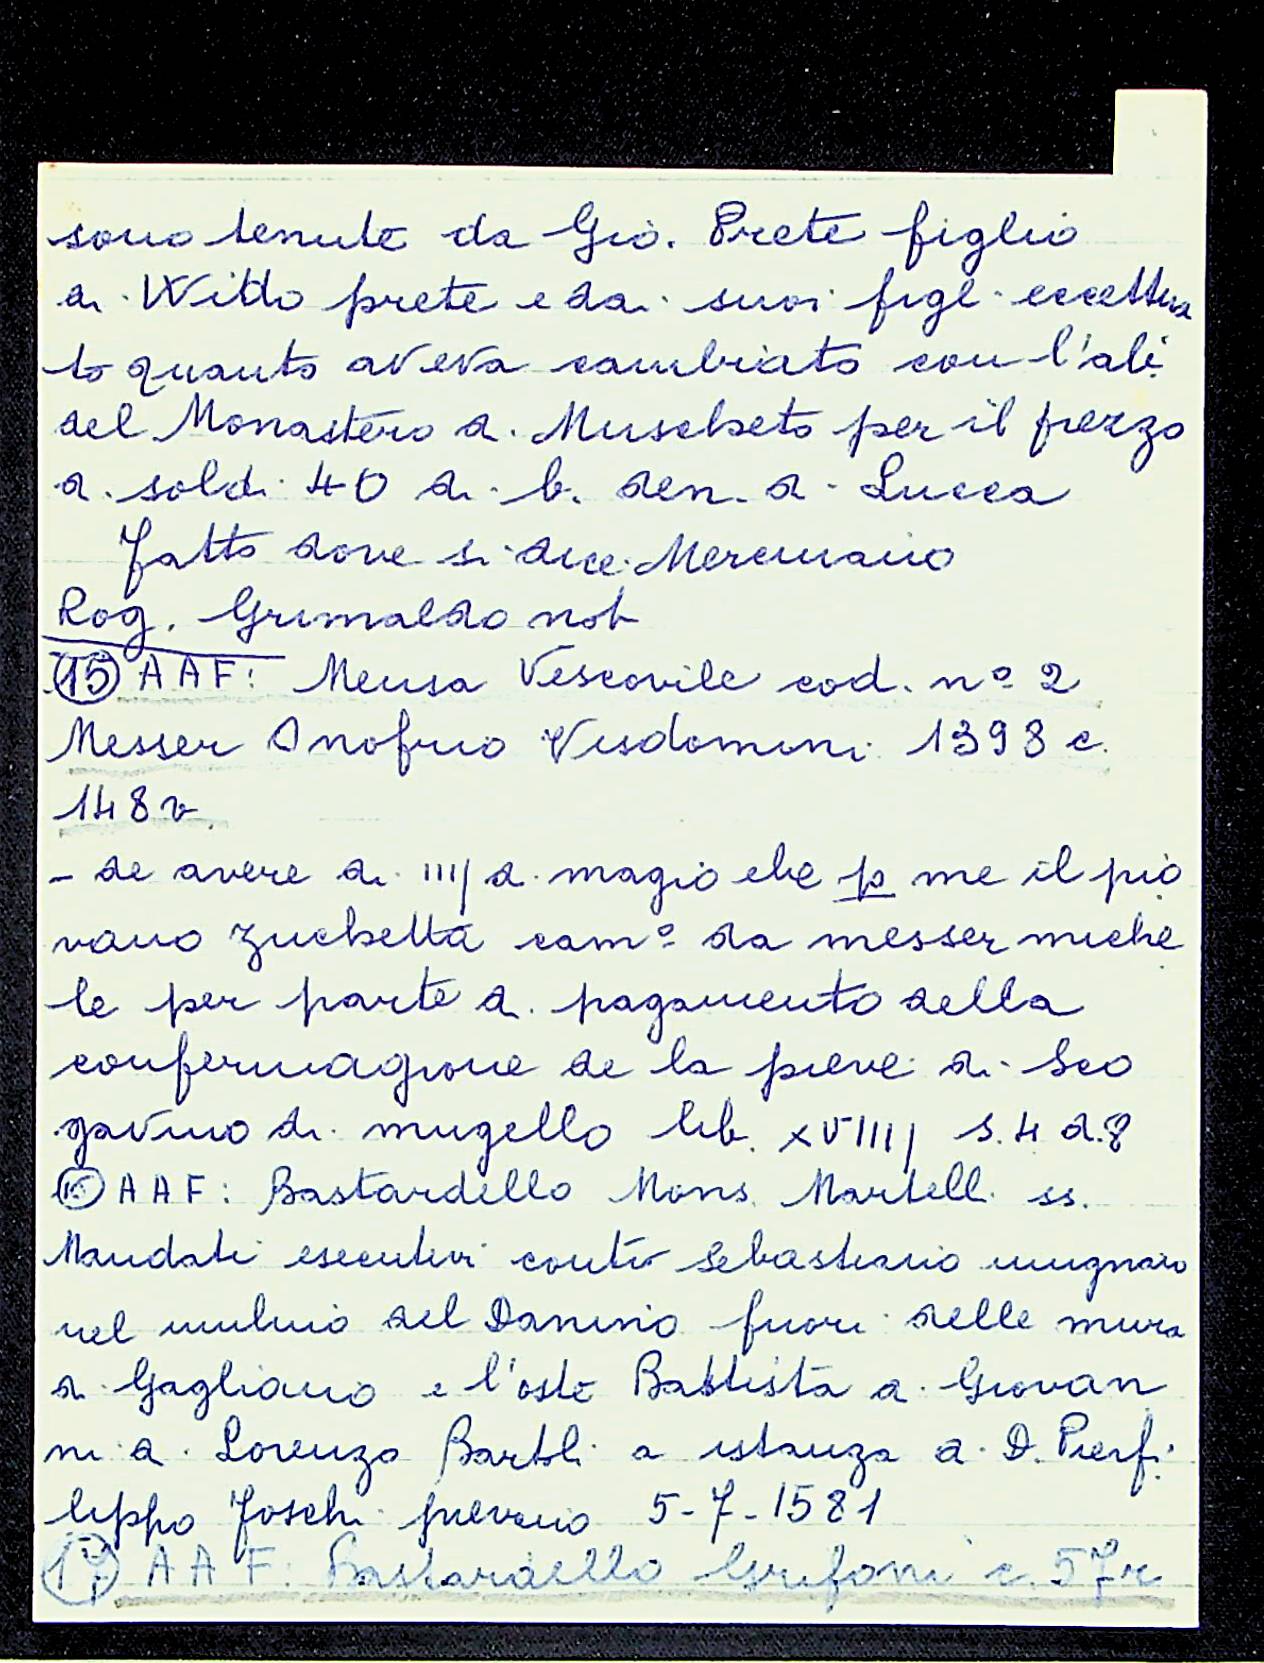 sono tenute da Gio. Prete figlio
di Wido prete e dai suoi figli eccettua
to quanto aveva cambiato con l'ab.
del Monastero di Muscheto per il prezzo
di soldi 40 di b. den. di Lucca
Fatto dove si dice Meremano
Rog. Grimaldo not
15 AAF: Mensa Vescovile cod. nº 2
Messer Onofrio Visdomini 1398 c.
148v
- de avere di IIII di magio che p me il pio
vano zuchetta camº da messer miche
le per parte di pagamento della
confermagione de la pieve di Sco
gavino di mugello lib. XVIIII s. 4 d. 8
16 AAF: Bastardello Mons. Martelli ss.
Mandati esecutivi contr Sebastiano mugnaio
nel mulino del Danino fuori delle mura
di Gagliano e l'oste Battista di Giovan
ni di Lorenzo Bartoli a istanza di D. Pierfi
lippo Foschi pievano 5-7-1581
17 AAF: Bastardello Grifoni c. 57r